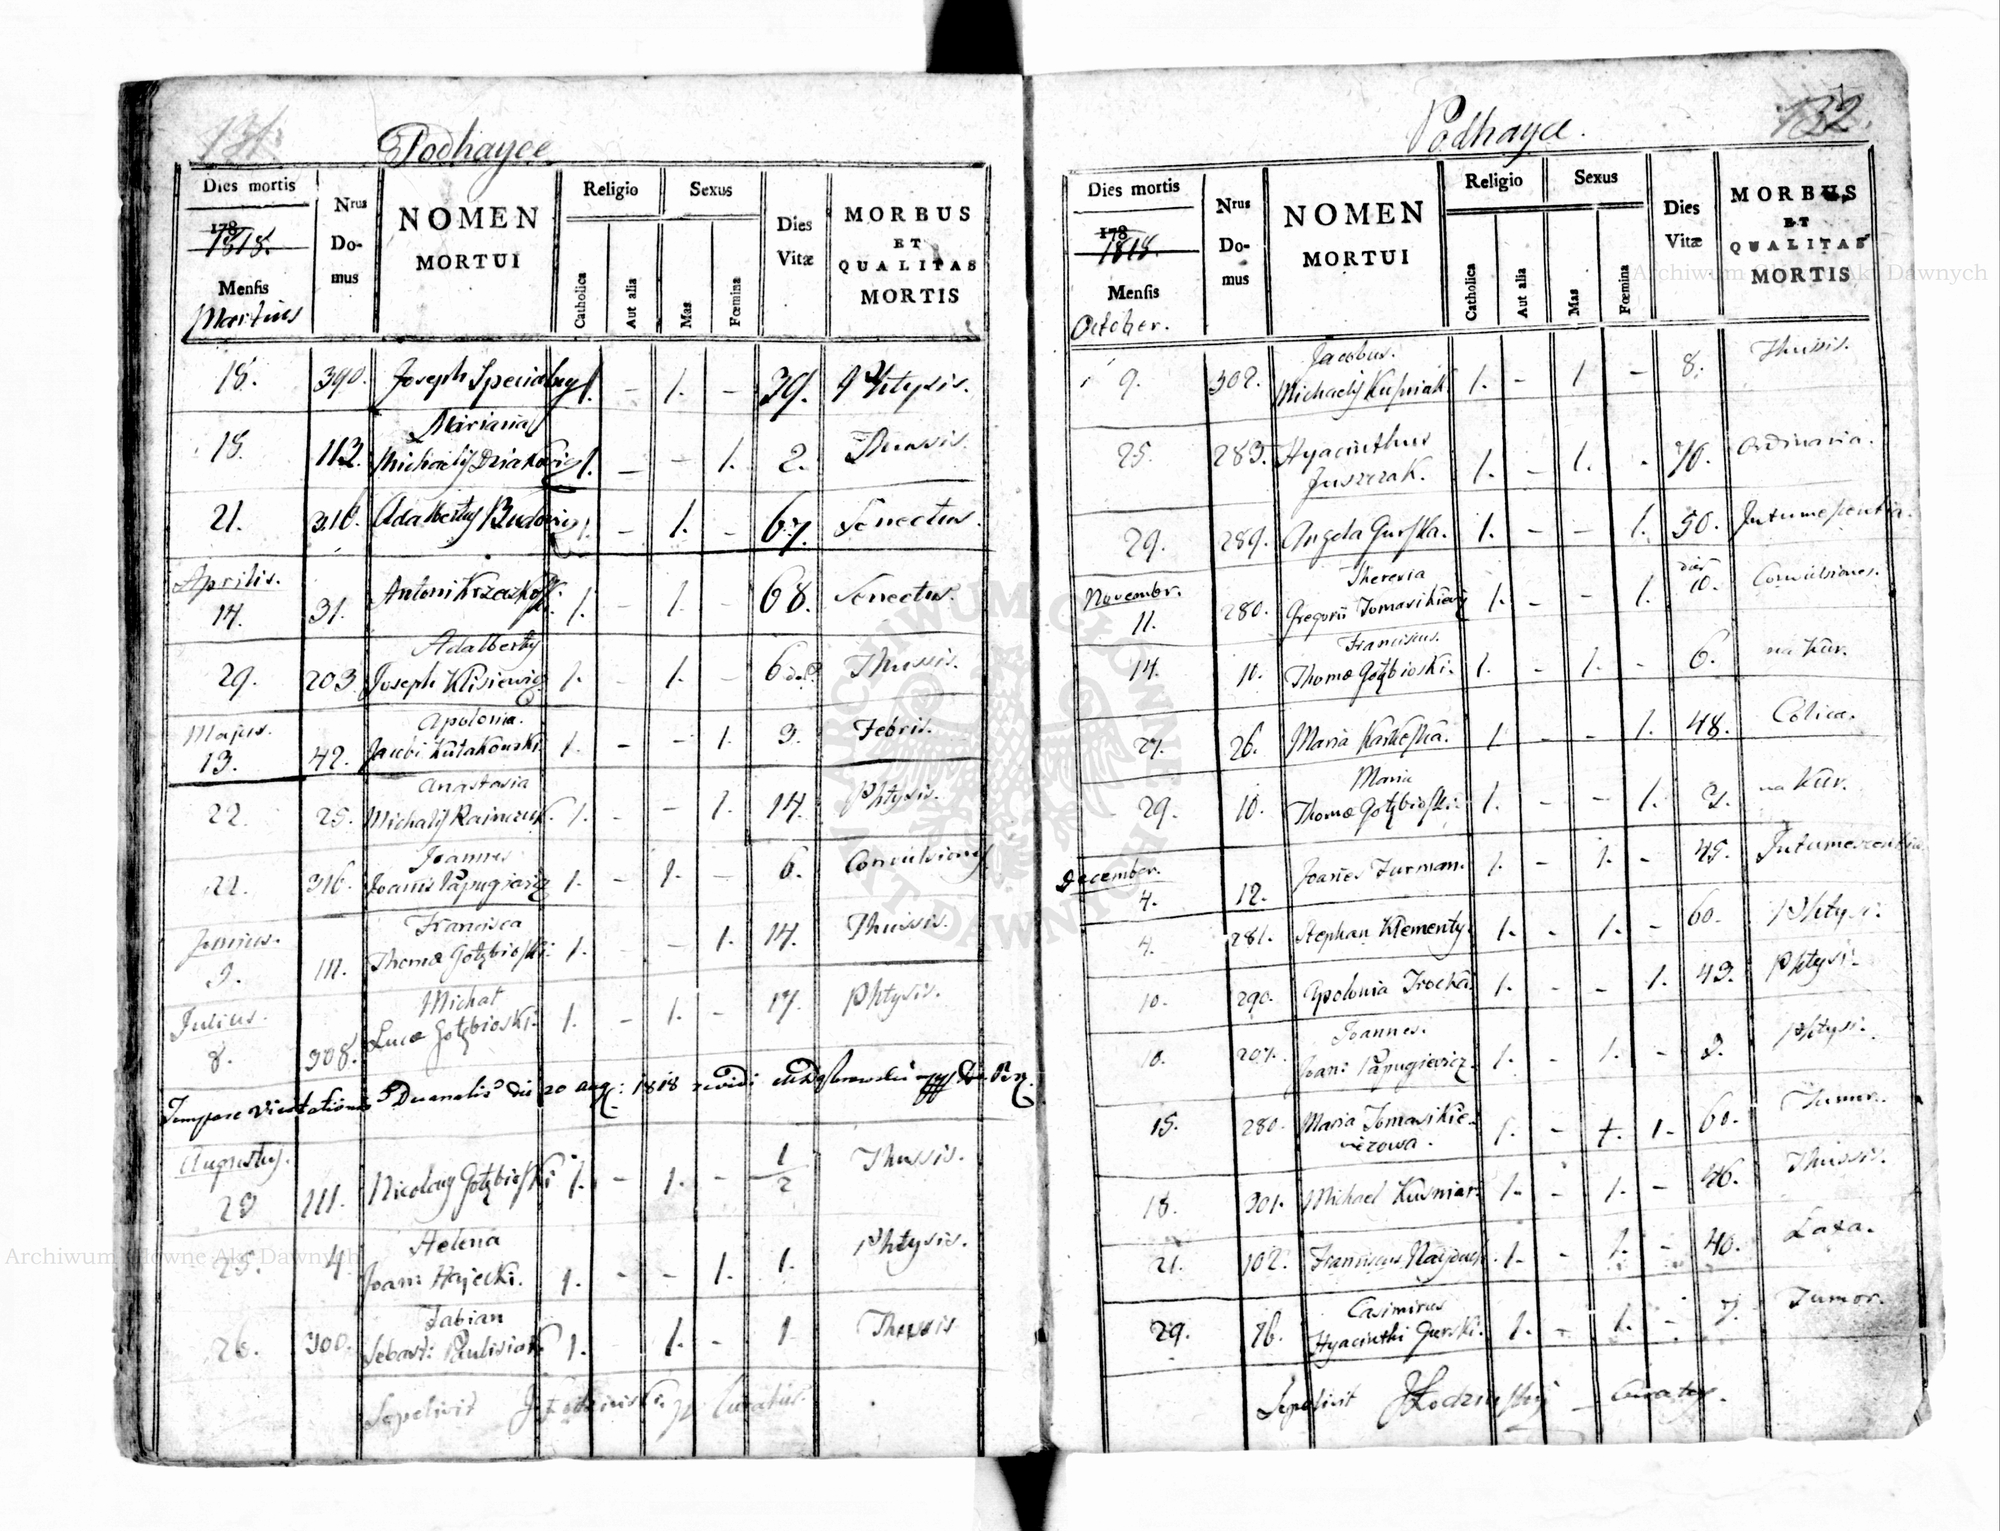 131.
Podhayce
Dies mortis Nrus Domus NOMEN MORTUI Religio Sexus Dies Vitæ MORBUS ET QUALITAS MORTIS
178
1818.
Mensis Catholica Aut alia Mas Fœmina
Martius
18. 390. Joseph Specialny 1. - 1. - 39. Phtysis.
Mariana
18. 112. Michaelis 1. - - 1. 2. Thussis.
21. 316. Adalbertus 1. - 1. - 67. Senectus.
Aprilis.
14. 31. Antoni 1. - 1. - 68. Senectus.
Adalbertus
29. 203. Joseph Klisiewicz 1. - 1. - 6 Thussis.
Majus. Apolonia.
13. 42. Jacobi Kutakowski 1. - - 1. 3. Febris.
Anastasia
22. 25. Michaelis 1. - - 1. 14. Phtysis.
Joannes
22. 316. Joanis Papugiewicz 1. - 1. - 6. Convulsiones
Junius. Francisca
3. 111. Thomæ Gołębioski. 1. - - 1. 14. Thussis.
Julius. Michał
8. 308. Lucæ Gołębioski. 1. - 1. - 17. Phtysis.
Tempore Visitationis Decanalis die 20 aug: 1818 revidi
Augustus.
23 111. Nicolaus Gołębioski 1. - 1. - 1/2 Thussis.
Helena
25. 4. Joani Hajecki. 1. - - 1. 1. Phtysis.
Fabian
26. 300. Sebast: 1. - 1. - 1 Thussis
Sepelivit Curatus.
132.
Podhayce.
Dies mortis Nrus Domus NOMEN MORTUI Religio Sexus Dies Vitæ MORBUS ET QUALITAS MORTIS
178
1818.
Mensis Catholica Aut alia Mas Fœmina
October.
Jacobus.
9. 302. Michaelis Kusniak. 1. - 1 - 8. Thussis.
25. 283. Hyacinthus 1. - 1. - 70. Ordinaria.
Juszczak.
29. 289. Angela Gurska. 1. - - 1. 50. Intumescentia.
Novembr. Theresia dies
11. 280. Gregorii Tomasikiewicz 1. - - 1. 10. Convulsiones.
Franciscus.
14. 10. Thomæ Gołębioski. 1. - 1. - 6. na Kur.
27. 26. Maria 1. - - 1. 48. Colica.
Maria
29. 10. Thomæ Gołębioski. 1. - - 1. 3. na Kur.
December.
4. 12. Joanes Furman. 1. - 1. - 45. Intumescentia
4. 281. Stephan Klementy. 1. - 1. - 60. Phtysi.
10. 290. Apolonia Trocka. 1. - - 1. 43. Phtysi.
Joannes.
10. 207. Joani Papugiewicz. 1. - 1. - 3. Phtysi.
15. 280. Maria Tomasikie- 1. - 1. 1. 60. Tumor.
wiczowa.
18. 301. Michael Kusniar. 1. - 1. - 46. Thussis.
21. 102. Franciscus 1. - 1. - 40. Laxa.
Casimirus
29. 76. Hyacinthi Gurski. 1. - 1. - 7. Tumor.
Sepelivit Curatus.
ARCHIWUM GŁÓWNE AKT DAWNYCH
Archiwum Główne Akt Dawnych
Archiwum Główne Akt Dawnych